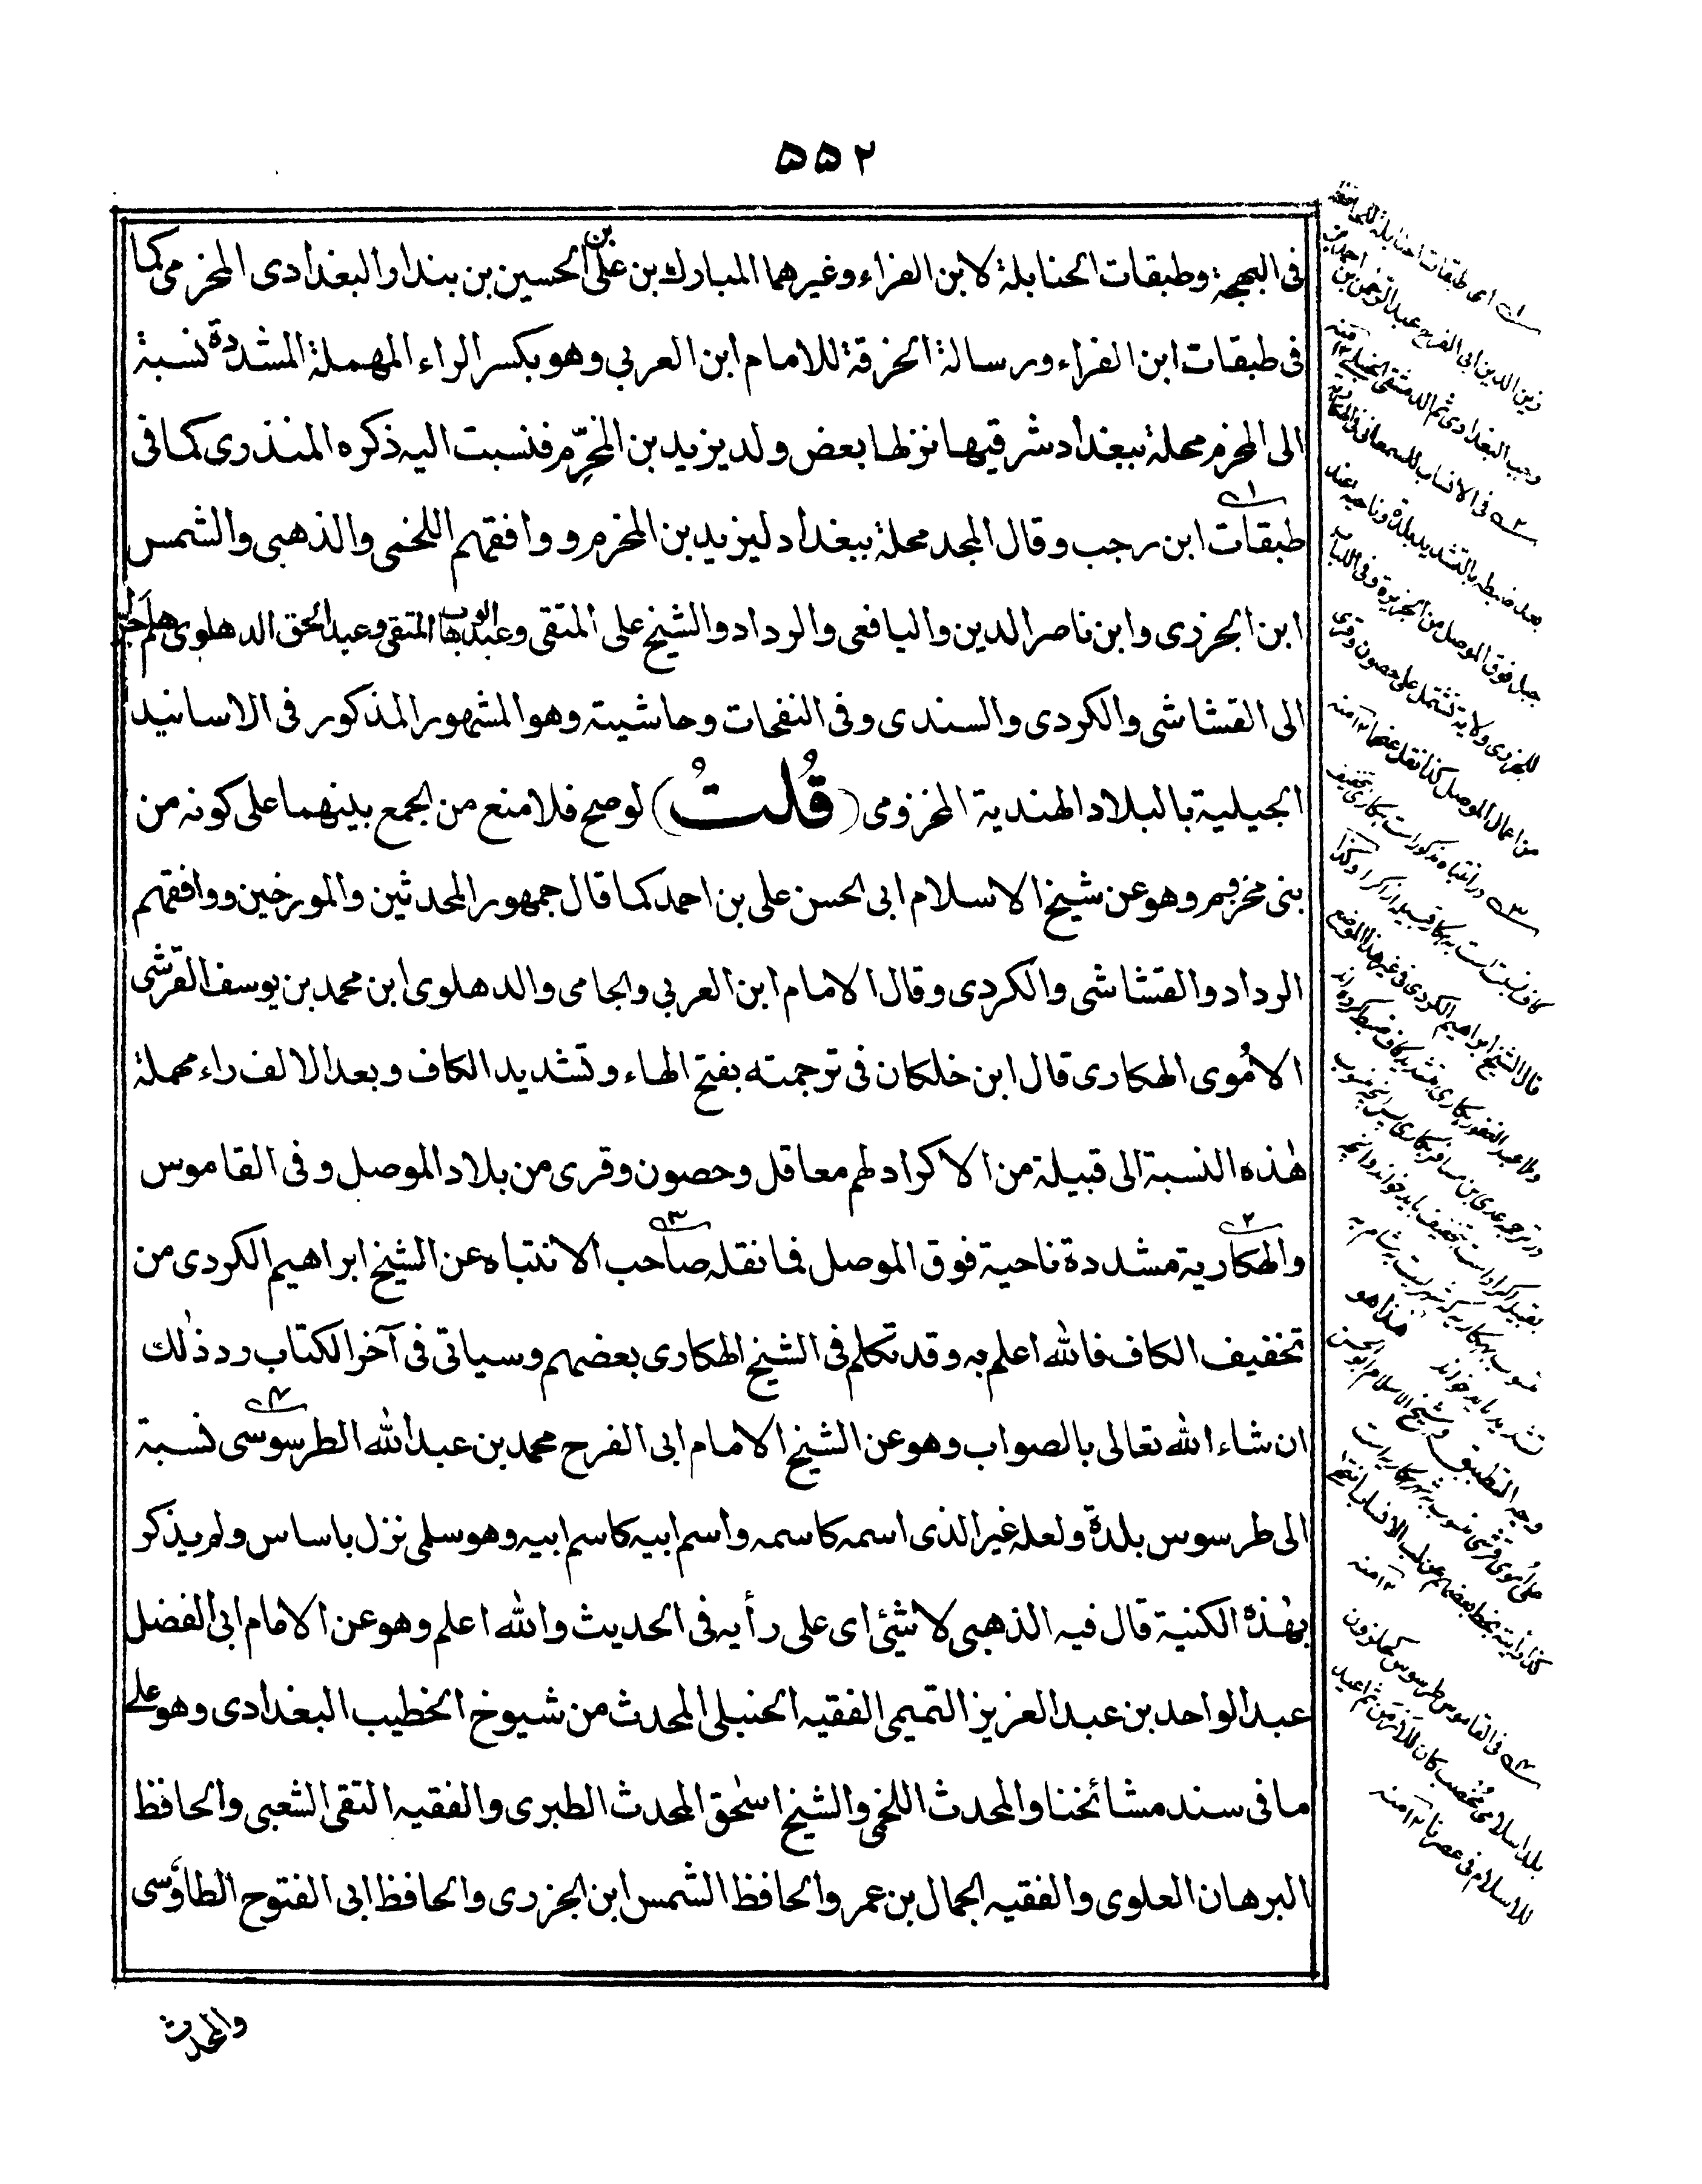 ۵۵۲
فى البهجة وطبقات الحنابلة لابن الفراء وغيرهما المبارك بن على بن الحسين بن بندار البغدادى المخرمى كما
فى طبقات ابن الفراء ورسالة الخرقة للامام ابن العربي وهو بكسر الراء المهملة المشددة نسبة
الى المخرم محلة ببغداد شرقيها نزلها بعض ولد يزيد بن المخرّم فنسبت اليه ذكره المنذرى كما فى
طبقات ابن رجب وقال المجد محلة ببغداد ليزيد بن المخرم ووافقهم اللخمى والذهبى والشمس
ابن الجزرى وابن ناصر الدين واليافعى والرداد والشيخ على المتقى وعبد الوهاب المتقى وعبد الحق الدهلوى
الى القشاشى والكردى والسندى وفى النفحات وحاشيته وهو المشهور المذكور فى الاسانيد
الجيلية بالبلاد الهندية المخزومى (قُلتُ) لو صح فلا منع من الجمع بينهما على كونه من
بنى مخزوم وهو عن شيخ الاسلام ابى الحسن على بن احمد كما قال جمهور المحدثين والمورخين ووافقهم
الرداد والقشاشى والكردى وقال الامام ابن العربي والجامى والدهلوى ابن محمد بن يوسف القرشى
الاُموى الهكارى قال ابن خلكان فى ترجمته بفتح الهاء وتشديد الكاف وبعد الالف راء مهملة
هٰذه النسبة الى قبيلة من الاكراد لهم معاقل وحصون وقرى من بلاد الموصل وفى القاموس
والهكارية مشددة ناحية فوق الموصل فما نقله صاحب الانتباه عن الشيخ ابراهيم الكردى من
تخفيف الكاف فالله اعلم به وقد تكلم فى الشيخ الهكارى بعضهم وسياتى فى آخر الكتاب رد ذٰلك
ان شاء الله تعالى بالصواب وهو عن الشيخ الامام ابى الفرح محمد بن عبد الله الطرسوسى نسبة
الى طرسوس بلدة ولعله غير الذى اسمه كاسمه واسم ابيه كاسم ابيه وهو سلمى نزل باساس ولم يذكر
بهٰذه الكنية قال فيه الذهبى لا شئ اى على رأيه فى الحديث والله اعلم وهو عن الامام ابى الفضل
عبد الواحد بن عبد العزيز التميمى الفقيه الحنبلى المحدث من شيوخ الخطيب البغدادى وهو على
ما فى سند مشائخنا والمحدث اللخمى والشيخ اسحٰق المحدث الطبرى والفقيه التقى الشعبى والحافظ
البرهان العلوى والفقيه الجمال بن عمر والحافظ الشمس ابن الجزرى والحافظ ابى الفتوح الطاؤسى
والمحدث
۱ اى طبقات احنابلة للحافظ
زين الدين ابى الفرج عبد الرحمن بن احمد بن
رجب البغدادى ثم الدمشقى الحنبلى ۱۲ منه
۲ فى الانساب للسمعانى الهكارية
بعد ضبطه بالتشديد بلدة وناحية عند
جبل فوق الموصل من الجزيرة وفى اللباب
للجزرى ولاية تشتمل على حصون وقرى
من اعمال الموصل كذا نقل عنها ۱۲ منه
۳ در انتباه مذكور است هكارى بتخفيف
كاف نسبت است به هكار قبيله از اكراد وكذا
قال الشيخ ابراهيم الكردى فى غير هذا الموضع
وملا عبد الغفور هكارى بتشديد كاف ضبط كرده اند
در ترجمه عدى بن مسافر هكارى پس انچه منسوب
بقبيله اكراد است بتخفيف بايد خواند وانچه
منسوب بهكاريه كه شهريست
تشديد بايد خواند هذا هو
وجه التطبيق وشيخ الاسلام ابو الحسن
على اموى قرشى منسوب به شهر هكاريه است
كذا رأيته بخط بعضهم عن لب الانساب
۱۲ منه
۴ فى القاموس طرسوس كحلزون
بلد اسلامى مُخصب كان للارمن ثم اعيد
للاسلام فى عصرنا ۱۲ منه